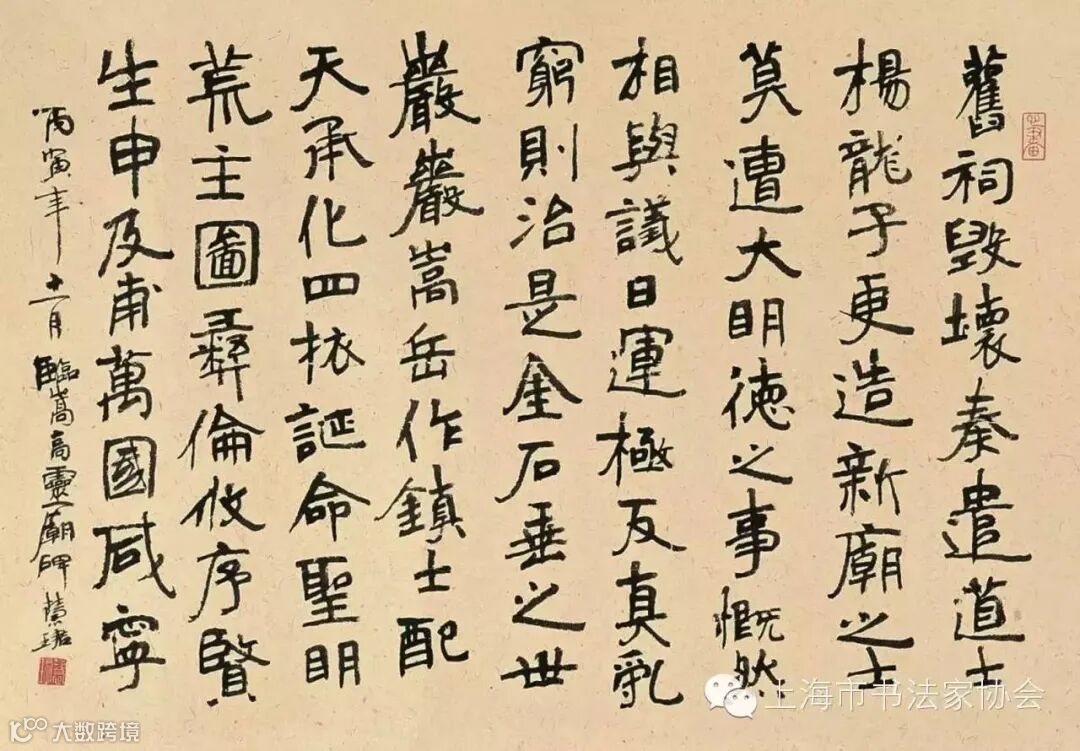 舊祠毀壞奏遣道士
楊龍子更造新廟之士
莫遭大明徳之事慨然
相與議日運極反真乱
窮則治是金石垂之世
巖巖嵩岳作鎮士配
天承化四㭕誕命聖明
荒主圖彝倫攸序賢
生申及甫萬國咸寧
丙寅年十一月臨嵩高靈廟碑
上海市书法家协会
大数跨境